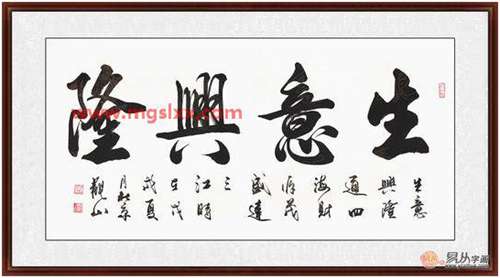 生意興隆
生意
興隆
通四
海財
源茂
盛達
三
江時
在戊
戌夏
月京
觀山
www.mgslxx.com
易从字画